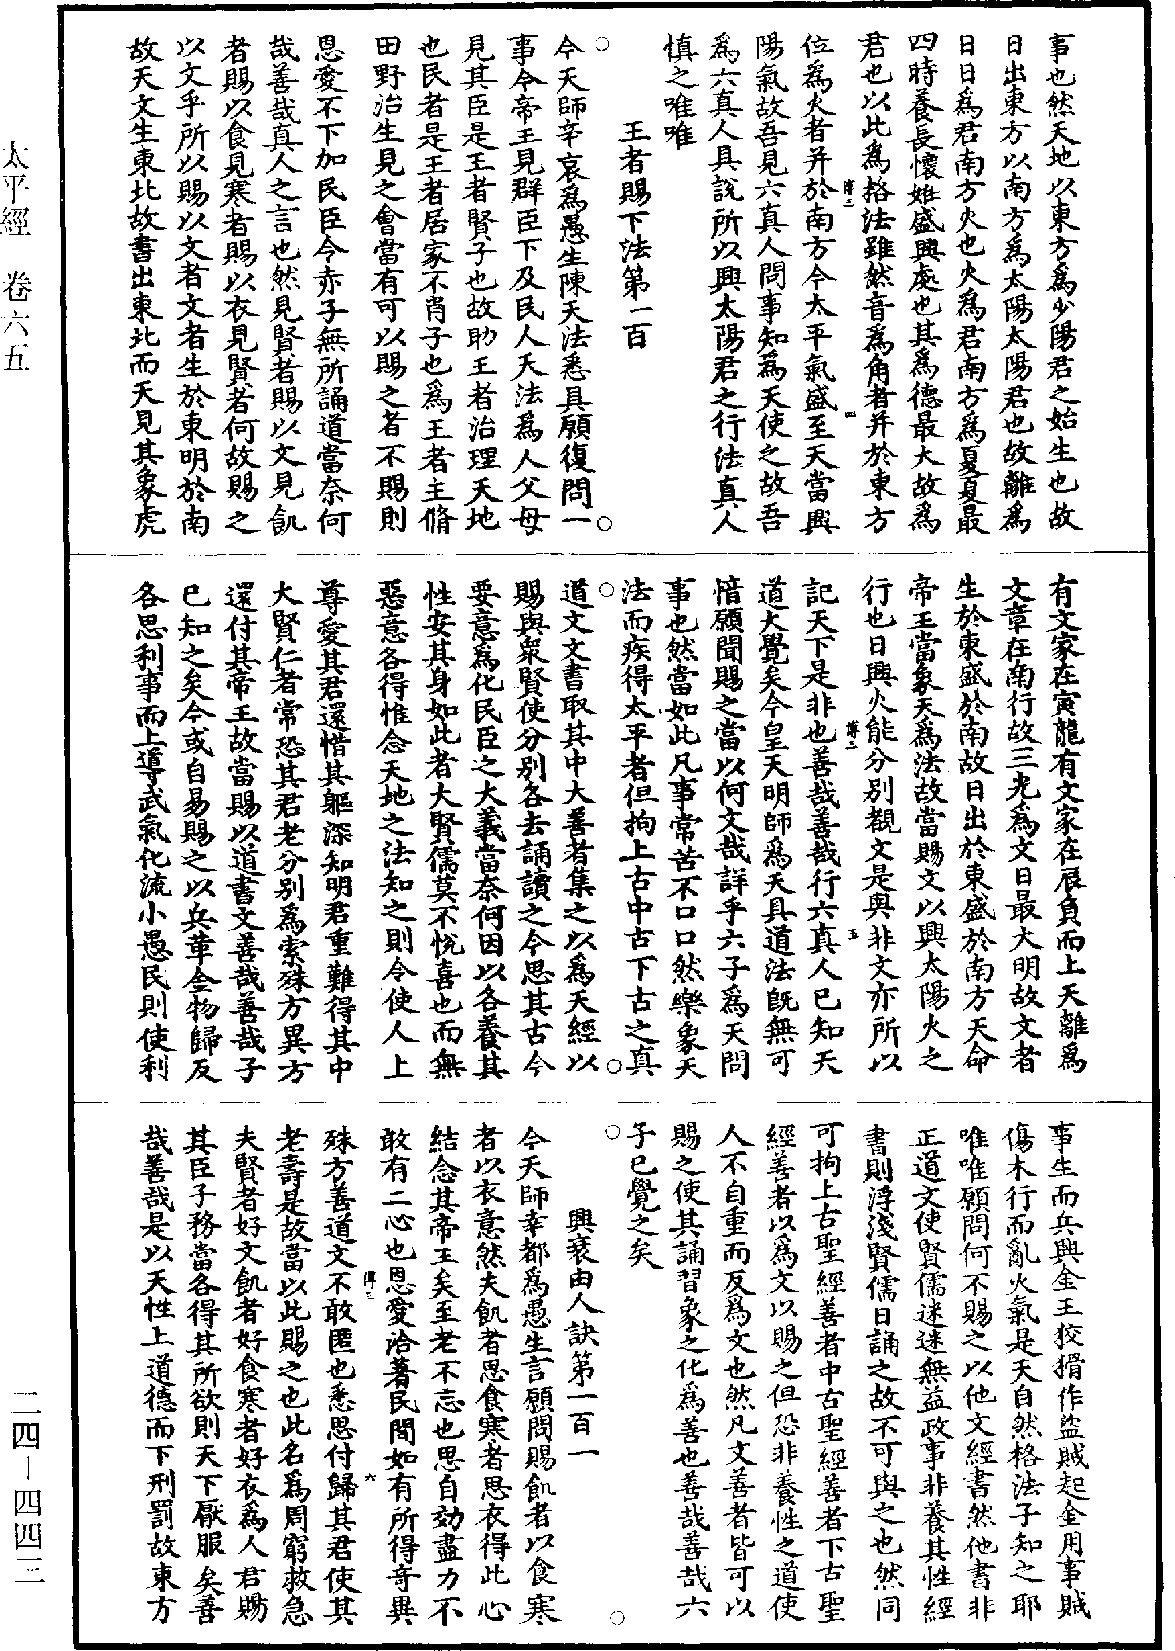 太平經　卷六五
二四—四四三
事也然天地以東方為少陽君之始生也故
日出東方以南方為太陽太陽君也故離為
日日為君南方火也火為君南方為夏夏最
四時養長懷妊盛興處也其為德最大故為
君也以此為格法雖然音為角者并於東方
位為火者并於南方今太平氣盛至天當興
陽氣故吾見六真人問事知為天使之故吾
為六真人具說所以興太陽君之行法真人
慎之唯唯
王者賜下法第一百
○今天師辛哀為愚生陳天法悉具願復問一○
事今帝王見群臣下及民人天法為人父母
見其臣是王者賢子也故助王者治理天地
也民者是王者居家不肖子也為王者主脩
田野治生見之會當有可以賜之者不賜則
恩愛不下加民臣令赤子無所誦道當奈何
哉善哉真人之言也然見賢者賜以文見飢
者賜以食見寒者賜以衣見賢者何故賜之
以文乎所以賜以文者文者生於東明於南
故天文生東北故書出東北而天見其象虎
有文家在寅龍有文家在辰負而上天離為
文章在南行故三光為文日最大明故文者
生於東盛於南故日出於東盛於南方天命
帝王當象天為法故當賜文以興太陽火之
行也日興火能分別觀文是與非文亦所以
記天下是非也善哉善哉行六真人已知天
道大覺矣今皇天明師為天具道法既無可
愔願聞賜之當以何文哉詳乎六子為天問
事也然當如此凡事常苦不口口然樂象天
法而疾得太平者但拘上古中古下古之真
○道文文書取其中大善者集之以為天經以○
賜與衆賢使分別各去誦讀之今思其古今
要意為化民臣之大義當奈何因以各養其
性安其身如此者大賢儒莫不悅喜也而無
惡意各得惟念天地之法知之則令使人上
尊愛其君還惜其軀深知明君重難得其中
大賢仁者常恐其君老分別為索殊方異方
還付其帝王故當賜以道書文善哉善哉子
已知之矣今或自易賜之以兵革金物歸反
各思利事而上導武氣化流小愚民則使利
事生而兵興金王狡猾作盜賊起金用事賊
傷木行而亂火氣是天自然格法子知之耶
唯唯願問何不賜之以他文經書然他書非
正道文使賢儒迷迷無益政事非養其性經
書則浮淺賢儒日誦之故不可與之也然同
可拘上古聖經善者中古聖經善者下古聖
經善者以為文以賜之但恐非養性之道使
人不自重而反為文也然凡文善者皆可以
賜之使其誦習象之化為善也善哉善哉六
○子已覺之矣○
興衰由人訣第一百一
今天師幸都為愚生言願問賜飢者以食寒
者以衣意然夫飢者思食寒者思衣得此心
結念其帝王矣至老不忘也思自効盡力不
敢有二心也恩愛洽著民間如有所得奇異
殊方善道文不敢匿也悉思付歸其君使其
老壽是故當以此賜之也此名為周窮救急
夫賢者好文飢者好食寒者好衣為人君賜
其臣子務當各得其所欲則天下厭服矣善
哉善哉是以天性上道德而下刑罰故東方